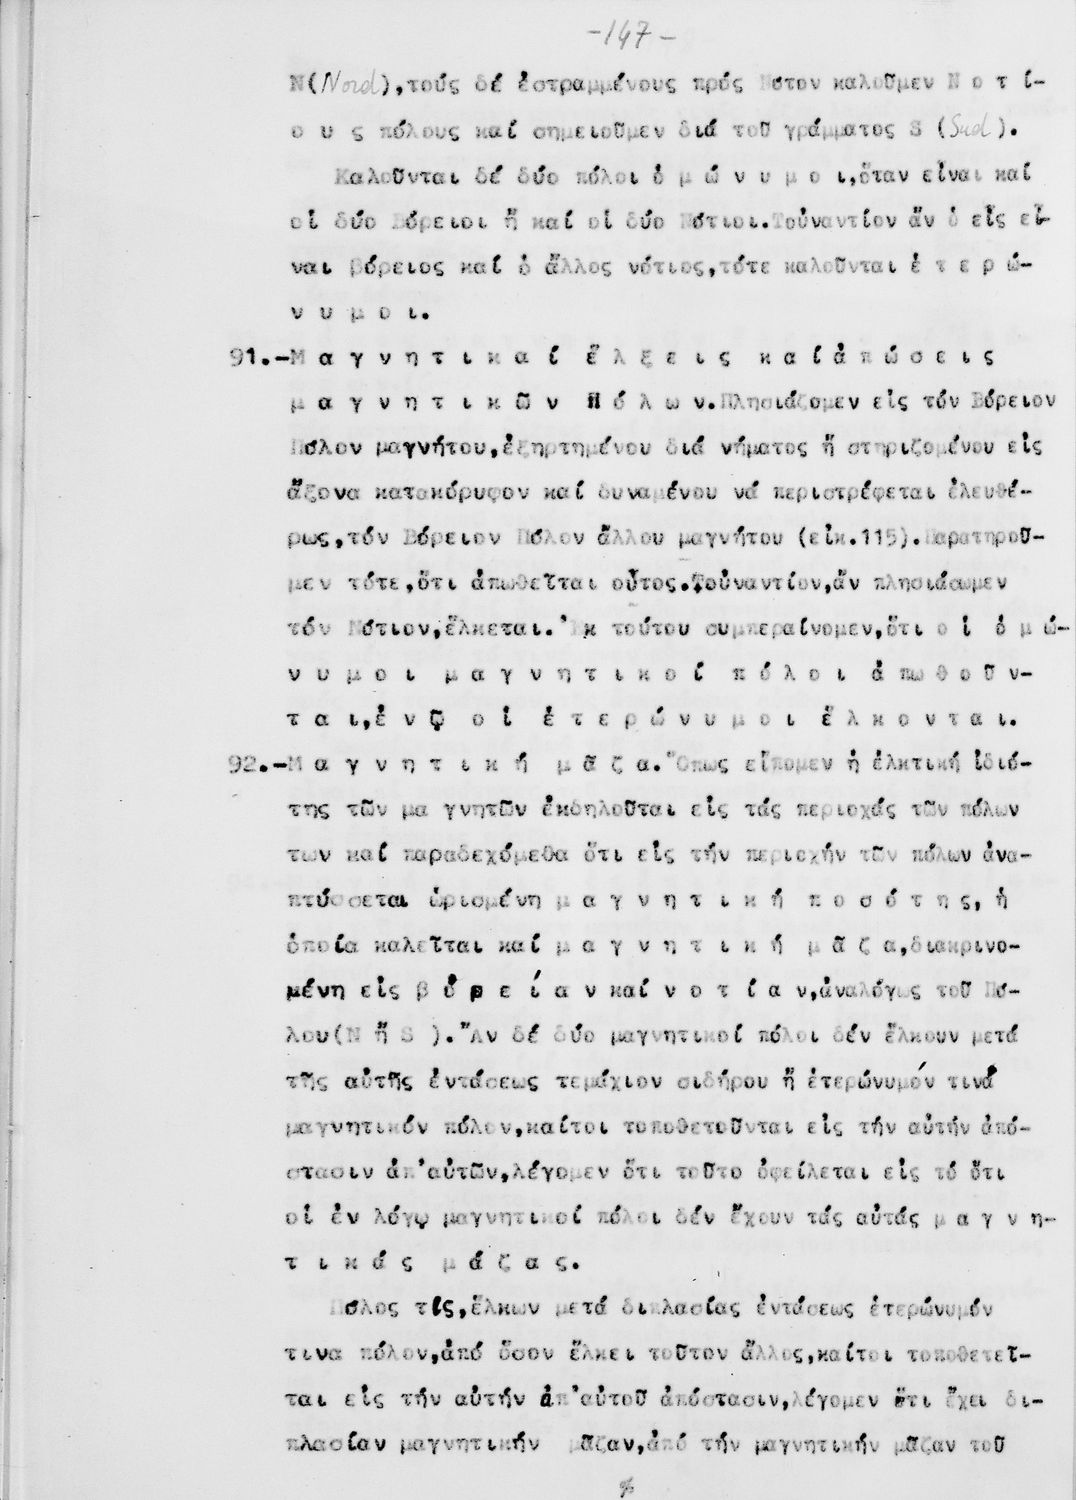 -147-
N(Nord),τούς δέ ἐστραμμένους πρός Νότον καλοῦμεν Ν ο τ ί-
ο υ ς πόλους καί σημειοῦμεν διά τοῦ γράμματος S (Sud).
Καλοῦνται δέ δύο πόλοι ὁ μ ώ ν υ μ ο ι,ὅταν εἶναι καί
οἱ δύο Βόρειοι ἤ καί οἱ δύο Νότιοι.Τοὐναντίον ἄν ὁ εἷς εἶ-
ναι βόρειος καί ὁ ἄλλος νότιος,τότε καλοῦνται ἑ τ ε ρ ώ-
ν υ μ ο ι.
91.-Μ α γ ν η τ ι κ α ί ἕ λ ξ ε ι ς κ α ί ἀ π ώ σ ε ι ς
μ α γ ν η τ ι κ ῶ ν Π ό λ ω ν.Πλησιάζομεν εἰς τόν Βόρειον
Πόλον μαγνήτου,ἐξηρτημένου διά νήματος ἤ στηριζομένου εἰς
ἄξονα κατακόρυφον καί δυναμένου νά περιστρέφεται ἐλευθέ-
ρως,τόν Βόρειον Πόλον ἄλλου μαγνήτου (εἰκ.115).Παρατηροῦ-
μεν τότε,ὅτι ἀπωθεῖται οὗτος.Τοὐναντίον,ἄν πλησιάσωμεν
τόν Νότιον,ἕλκεται.Ἐκ τούτου συμπεραίνομεν,ὅτι ο ἱ ὁ μ ώ-
ν υ μ ο ι μ α γ ν η τ ι κ ο ί π ό λ ο ι ἀ πω θ ο ῦ ν-
τ α ι,ἐ ν ῷ ο ἱ ἑ τ ε ρ ώ ν υ μ ο ι ἕ λ κ ο ν τ α ι.
92.-Μ α γ ν η τ ι κ ή μ ᾶ ζ α.Ὅπως εἴπομεν ἡ ἑλκτική ἰδιό-
της τῶν μα γνητῶν ἐκδηλοῦται εἰς τάς περιοχάς τῶν πόλων
των καί παραδεχόμεθα ὅτι εἰς τήν περιοχήν τῶν πόλων ἀνα-
πτύσσεται ὡρισμένη μ α γ ν η τ ι κ ή π ο σ ό τ η ς, ἡ
ὁποία καλεῖται καί μ α γ ν η τ ι κ ή μ ᾶ ζ α,διακρινο-
μένη εἰς β ό ρ ε ί α ν καί ν ο τ ί α ν,ἀναλόγως τοῦ Πό-
λου(N ἤ S ).Ἄν δέ δύο μαγνητικοί πόλοι δέν ἕλκουν μετά
τῆς αὐτῆς ἐντάσεως τεμάχιον σιδήρου ἤ ἑτερώνυμόν τινά
μαγνητικόν πόλον,καίτοι τοποθετοῦνται εἰς τήν αὐτήν ἀπό-
στασιν ἀπ'αὐτῶν,λέγομεν ὅτι τοῦτο ὀφείλεται εἰς τό ὅτι
οἱ ἐν λόγῳ μαγνητικοί πόλοι δέν ἔχουν τάς αὐτάς μ α γ ν η-
τ ι κ ά ς μ ά ζ α ς.
Πόλος τίς,ἕλκων μετά διπλασίας ἐντάσεως ἑτερώνυμόν
τινα πόλον,ἀπό ὅσον ἕλκει τοῦτον ἄλλος,καίτοι τοποθετεῖ-
ται εἰς τήν αὐτήν ἀπ'αὐτοῦ ἀπόστασιν,λέγομεν ὅτι ἔχει δι-
πλασίαν μαγνητικήν μᾶζαν,ἀπό τήν μαγνητικήν μᾶζαν τοῦ